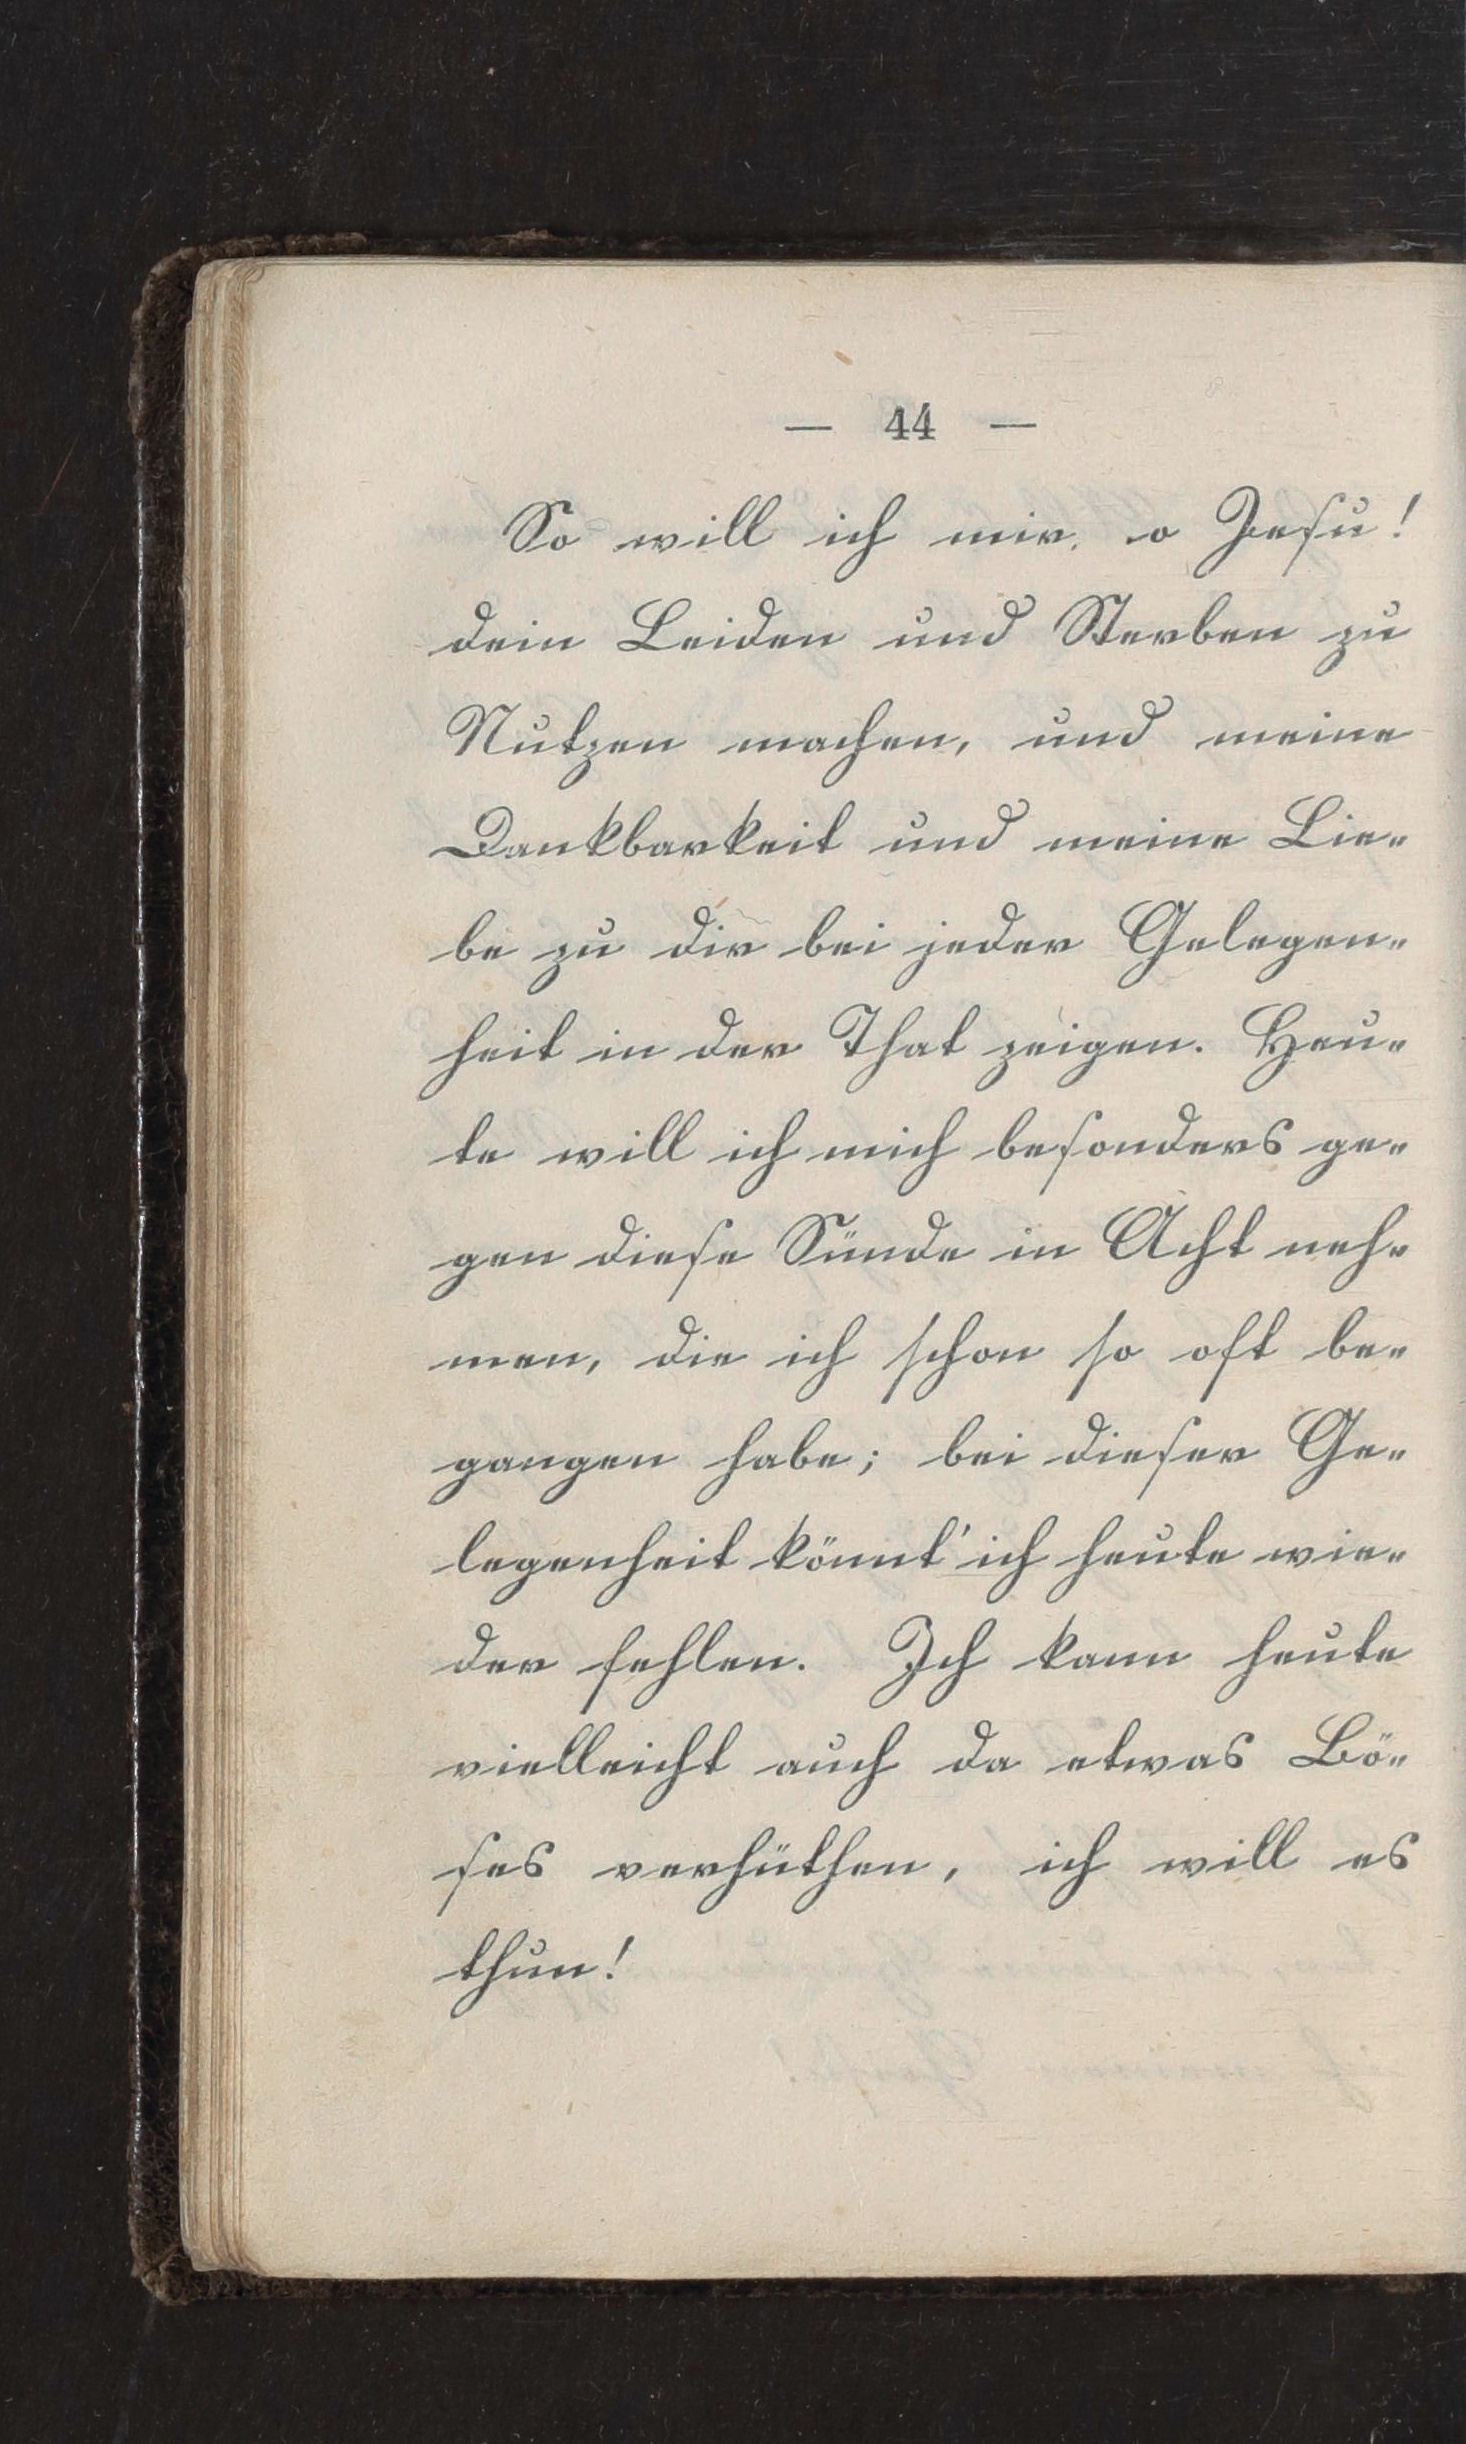 — 44 —
So will ich mir, o Jesu!
dein Leiden und Sterben zu
Nutzen machen, und meine
Dankbarkeit und meine Lie-
be zu dir bei jeder Gelegen-
heit in der That zeigen. Heu-
te will ich mich besonders ge-
gen diese Sünde in Acht neh-
men, die ich schon so oft be-
gangen habe; bei dieser Ge-
legenheit könnt' ich heute wie-
der fehlen. Ich kann heute
vielleicht auch da etwas Bö-
ses verhüthen, ich will es
thun!